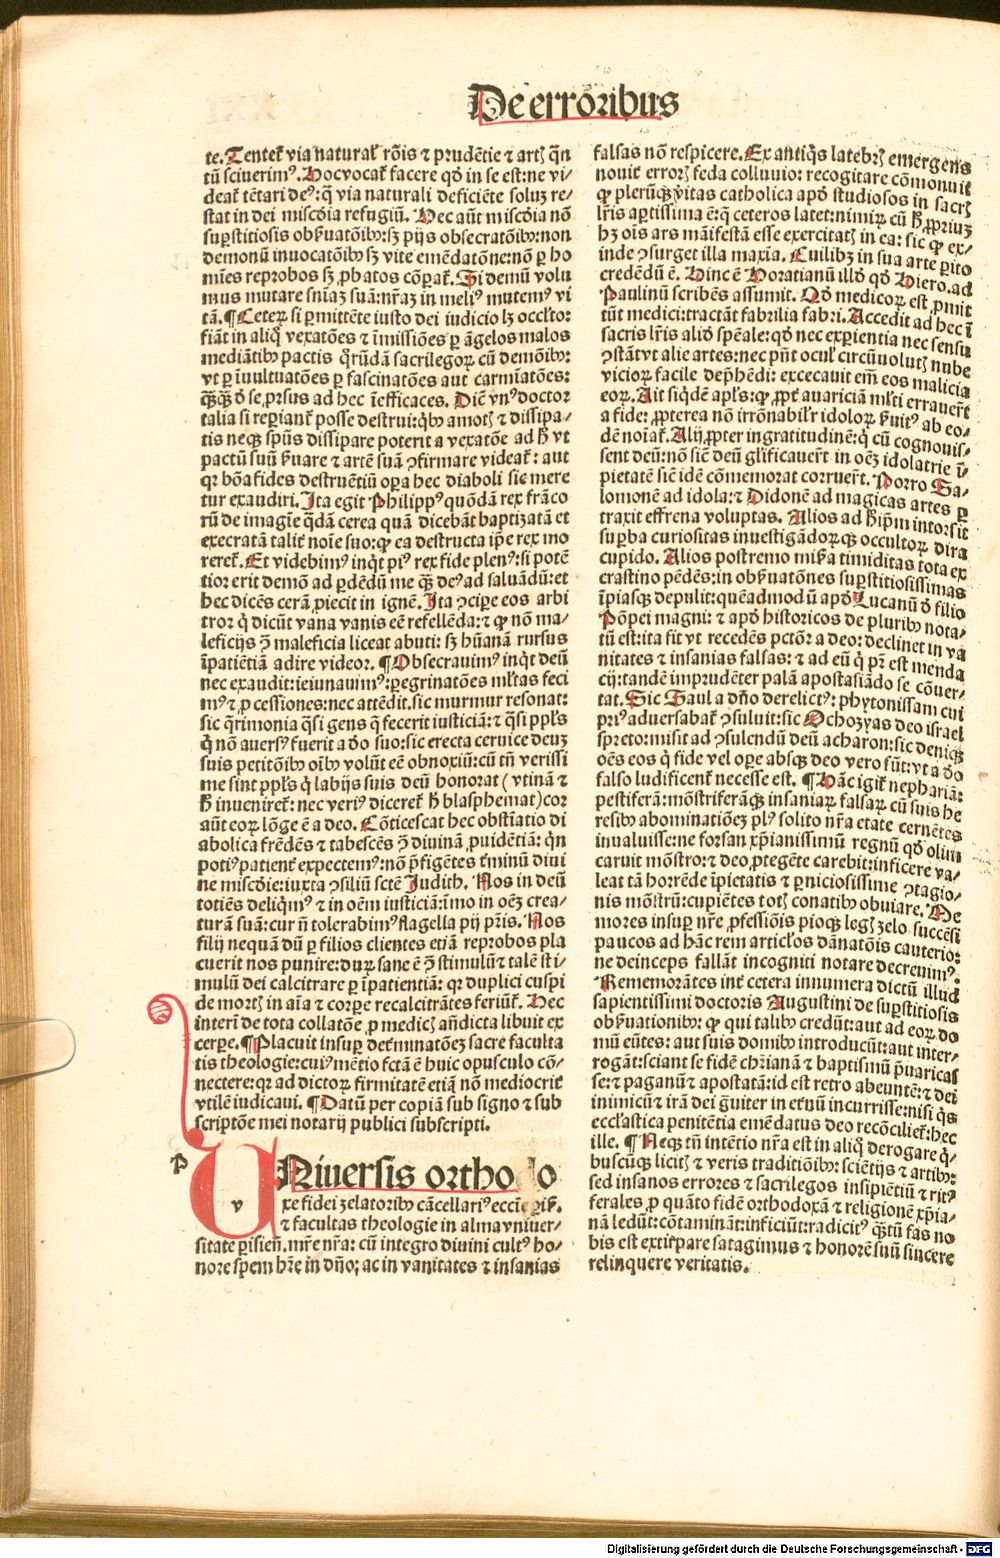 De erroribus
te. Tentet᷑ via natural᷑ rõis ⁊ prudẽtie ⁊ artꝭ q̃n
tũ sciuerimꝰ. Hoc vocat᷑ facere qð in se est: ne vi⸗
deat᷑ tẽtari deꝰ: q̃ via naturali deficiẽte soluꝫ re⸗
stat in dei miscðia refugiũ. Hec aũt miscðia nõ
sup̱stitiosis obẜuatõibꝰ: sꝫ pijs obsecratõibꝰ: non
demonũ inuocatõibꝰ sꝫ vite emẽdatõne: non ꝑ ho
mĩes reprobos sꝫ ꝓbatos cõparat᷑. Si demũ volu
mus mutare sniaꝫ suã: nr̃aꝫ in meliꝰ mutemꝰ vi
tã. ¶ Ceteꝝ si ꝑmittẽte iusto dei iudicio lꝫ occl᷑to:
fiãt in aliq̃ vexatões ⁊ ĩmissiões ꝑ ãgelos malos
mediãtibꝰ pactis q̃rũdã sacrilegoꝝ cũ demõibꝰ:
vt ꝑ ĩuultuatões ꝑ fascinatões aut carmĩatões:
q̃sq̃ð se, ꝓrsus ad hec ĩefficaces. Diẽ vnꝰ doctor
talia si reꝑiant᷑ posse destrui: q̃bꝰ amotꝭ ⁊ dissipa⸗
tis neqꝫ spũs dissipare poterit a vexatõe ad ħ vt
pactũ suũ ẜuare ⁊ artẽ suã ꝯfirmare videat᷑: aut
qꝛ bõa fides destruẽtiũ oꝑa hec diaboli sic mere
tur exaudiri. Ita egit Philippꝰ quõdã rex frãco
rũ de imagĩe q̃dã cerea quã dicebãt baptizatã et
execratã talit᷑ noĩe suo: ꝙ ea destructa ip̃e rex mo
reret᷑. Et videbimꝰ inq̃t piꝰ rex fide plenꝰ: si potẽ
tior erit demõ ad ꝑdẽdũ me q̃ꝫ deꝰ ad saluãdũ: et
hec dicẽs cerã ꝓiecit in ignẽ. Ita ꝯcipe eos arbi
tror q̃ dicũt vana vanis eẽ refellẽda: ⁊ ꝙ nõ ma⸗
leficijs ꝯ̃ maleficia liceat abuti: sꝫ hũanã rursus
ĩpatiẽtiã adire videor. ¶ Obsecrauimꝰ inq̃t deũ
nec exaudit: ieiunauimꝰ: ꝑegrinatões ml᷑tas feci
mꝰ ⁊ ꝓcessiones: nec attẽdit. sic murmur resonat:
sic q̃rimonia q̃si gens q̃ fecerit iusticiã: ⁊ q̃si ppl᷑s
q̃ nõ auersꝰ fuerit a ðo suo: sic erecta ceruice deuꝫ
suis petitõibꝰ oĩbꝰ volũt eẽ obnoxiũ: cũ tñ verissi
me sint ppl᷑s q̃ labijs suis deũ honorat (vtinã ⁊
ħ inueniret᷑: nec veriꝰ diceret᷑ ħ blasphemat) cor
aũt eoꝝ lõge ẽ a deo. Cõticescat hec obstĩatio di
abolica frẽdẽs ⁊ tabescẽs ꝯ̃ diuinã ꝓuidẽtiã: q̃n
potiꝰ patient᷑ expectemꝰ: nõ p̃figẽtes t᷑minũ diui
ne miscðie: iuxta ꝯsiliũ sctẽ Judith. Nos in deũ
totiẽs deliq̃mꝰ ⁊ in oẽm iusticiã: ĩmo in oẽꝫ crea⸗
turã suã: cur ñ tolerabimꝰ flagella pij pr̃is. Nos
filij nequã dũ ꝑ filios clientes etiã reprobos pla
cuerit nos punire: duꝝ sane ẽ ꝯ̃ stimulũ ⁊ talẽ sti⸗
mulũ dei calcitrare ꝑ ĩpatientiã: qꝛ duplici cuspi
de mortꝭ in aĩa ⁊ corꝑe recalcitrãtes feriunt᷑. Hec
interĩ de tota collatõe ꝓ medicꝭ añdicta libuit ex
cerpe. ¶ Placuit insuꝑ det᷑minatõeꝫ sacre faculta
tis theologie: cuiꝰ mẽtio fctã ẽ huic opusculo cõ⸗
nectere: qꝛ ad dictoꝝ firmitatẽ etiã nõ mediocrit᷑
vtilẽ iudicaui. ¶ Datũ per copiã sub signo ⁊ sub
scriptõe mei notarij publici subscripti.
UNiuersis ortho lo
xe fidei zelatoribꝰ cãcellariꝰ eccĩe
⁊ facultas theologie in alma vniuer⸗
sitate ꝑisieñ. mr̃e nr̃a: cũ integro diuini cultꝰ ho⸗
nore spem hr̃e in dño; ac in vanitates ⁊ insanias
falsas nõ respicere. Ex antiq̃s latebrꝭ emergens
nouit᷑ errorꝭ feda colluuio: recogitare cõmonuit
ꝙ plerũqꝫ v̾itas catholica apð studiosos in sacrꝭ
lr̃is aꝑtissima ẽ: q̃ ceteros latet: nimiꝝ cũ ħ ꝓpriuꝫ
hꝫ oĩs ars mãifestã esse exercitatꝭ in ea: sic ꝙ ex⸗
inde ꝯsurget illa maxia. Cuilibꝫ in sua arte ꝑito
credẽdũ ẽ. Hinc ẽ Horatianũ illð qð Hiero. ad
Paulinũ scribẽs assumit. Qð medicoꝝ est ꝓmit
tũt medici: tractãt fabrilia fabri. Accedit ad hec ĩ
sacris lr̃is alið sꝑẽale: qð nec exꝑientia nec sensu
ꝯstãt vt alie artes: nec pñt ocul᷑ circũuolutꝭ nube
vicioꝝ facile dep̃hẽdi: excecauit em̃ eos malicia
eoꝝ. Ait siq̃dẽ apl᷑s: ꝙ ꝓpt᷑ auariciã ml᷑ti errauer̃t
a fide: ꝓpterea nõ irrõnabilr̃ idoloꝝ ẜuitꝰ ab eo⸗
dẽ noĩat᷑. Alij ꝓpter ingratitudinẽ: q̃ cũ cognouis⸗
sent deũ: nõ sic̃ deũ gl᷑ificauer̃t in oẽꝫ idolatrie ĩ⸗
pietatẽ sic̃ idẽ cõmemorat corruer̃t. Porro Sa⸗
lomonẽ ad idola: ⁊ Didonẽ ad magicas artes ꝑ
traxit effrena voluptas. Alios ad ħip̃m intorsit
suꝑba curiositas inuestigãdoꝝqꝫ occultoꝝ dira
cupido. Alios postremo miẜa timiditas tota ex
crastino pẽdẽs: in obẜuatõnes suꝑstitiosissimas
ĩpiasqꝫ depulit: quẽadmodũ apð Lucanũ ð filio
Põpei magni: ⁊ apð historicos de pluribꝰ nota⸗
tũ est: ita fit vt recedẽs pctõr a deo: declinet in va
nitates ⁊ insanias falsas: ⁊ ad eũ q̃ pr̃ est menda
cij: tandẽ imprudẽter palã apostasiãdo se cõuer⸗
tat. Sic Saul a dño derelictꝰ: phytonissam cui
priꝰ aduersabat᷑ ꝯsuluit: sic Ochozyas deo israel
spreto: misit ad ꝯsulendũ deũ acharon: sic deniqꝫ
oẽs eos q̃ fide vel oꝑe absqꝫ deo vero fũt: vt a ðo
falso ludificent᷑ necesse est. ¶ Hãc igit᷑ nephariã:
pestiferã: mõstriferãqꝫ insaniaꝝ falsaꝝ cũ suis he
resibꝰ abominationẽꝫ plꝰ solito nr̃a etate cernẽtes
inualuisse: ne forsan xp̃ianissimũ regnũ qð olim
caruit mõstro: ⁊ deo ꝓtegẽte carebit: inficere va⸗
leat tã horrẽde ĩpietatis ⁊ ꝑniciosissime ꝯtagio⸗
nis mõstrũ: cupiẽtes totꝭ conatibꝰ obuiare. Me
mores insuꝑ nr̃e ꝓfessiõis pioqꝫ legꝭ zelo succẽsi
paucos ad hãc rem articl᷑os dãnatõis cauterio:
ne deinceps fallãt incogniti notare decreuimꝰ.
Rememorãtes int᷑ cetera innumera dictũ illud
sapientissimi doctoris Augustini de suꝑstitiosis
obẜuationibꝰ: ꝙ qui talibꝰ credũt: aut ad eoꝝ do
mũ eũtes: aut suis domibꝰ introducũt: aut inter⸗
rogãt: sciant se fidẽ chr̃ianã ⁊ baptismũ p̃uaricas
se: ⁊ paganũ ⁊ apostatã: id est retro abeuntẽ: ⁊ dei
inimicũ ⁊ irã dei g̃uiter in et᷑nũ incurrisse: nisi q̃s
eccl᷑astica penitẽtia emẽdatus deo recõciliet᷑: hec
ille. ¶ Neqꝫ tñ intẽtio nr̃a est in aliq̃ derogare q̃⸗
buscũqꝫ licitꝭ ⁊ veris traditiõibꝰ: sciẽtijs ⁊ artibꝰ:
sed insanos errores ⁊ sacrilegos insipiẽtiũ ⁊ ritꝰ
ferales, ꝓ quãto fidẽ orthodoxã ⁊ religionẽ xp̃ia⸗
nã ledũt: cõtaminãt: inficiũt: radicitꝰ q̃tũ fas no
bis est extirpare satagimus ⁊ honorẽ suũ sincere
relinquere veritatis.
Digitalisierung gefördert durch die Deutsche Forschungsgemeinschaft - DFG